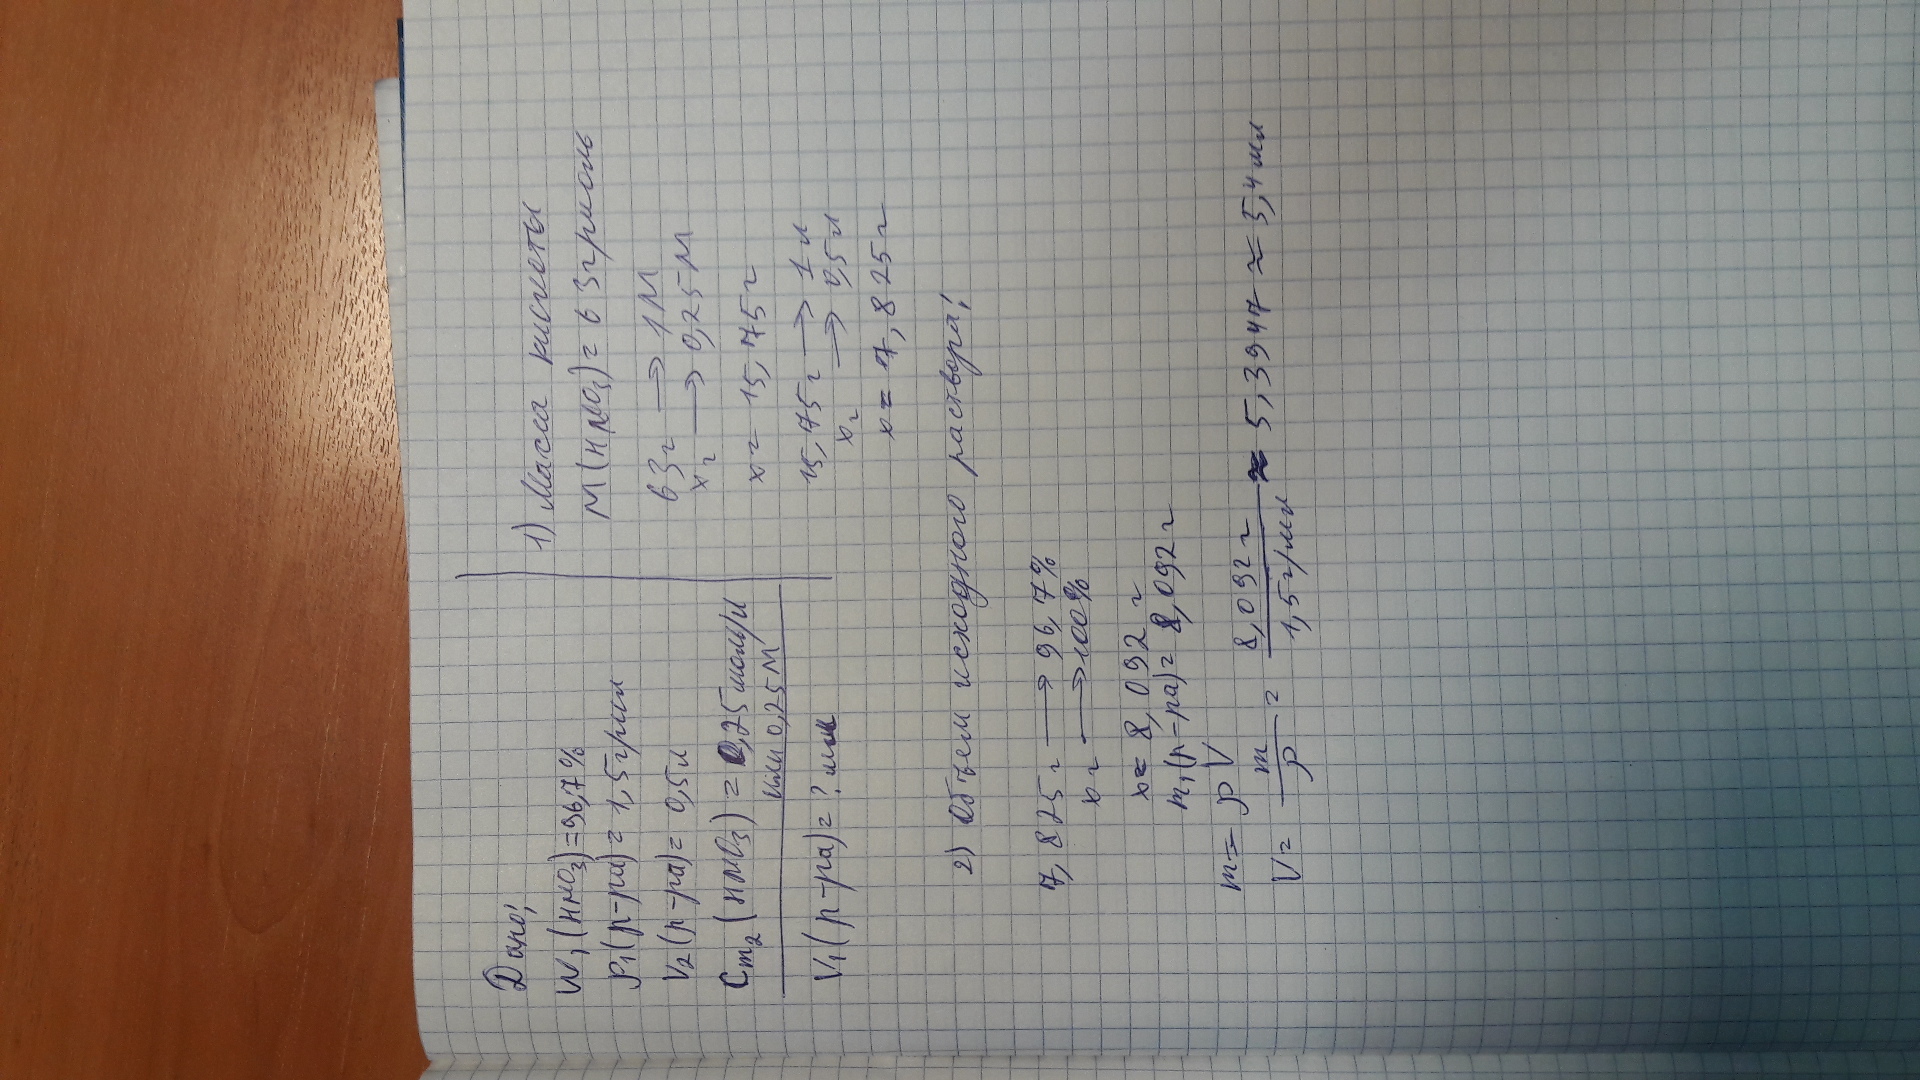 Дано;
W₁(HNO₃)=96,7%
ρ₁(р-ра)=1,5г/мл
V₂(р-ра)=0,5л
Cm₂(HNO₃)=0,25моль/л
или 0,25М
V₁(р-ра)=? мл
1) Масса кислоты
M(HNO₃)=63г/моль
63г → 1М
xг → 0,25М
x= 15,75г
15,75г → 1л
xг → 0,5л
x= 7,825г
2) Объем исходного раствора;
7,825г → 96,7%
xг → 100%
x= 8,092г
m₁(р-ра)=8,092г
m= ρV
V= m/ρ = 8,092г/1,5г/мл = 5,3947 ≈ 5,4мл